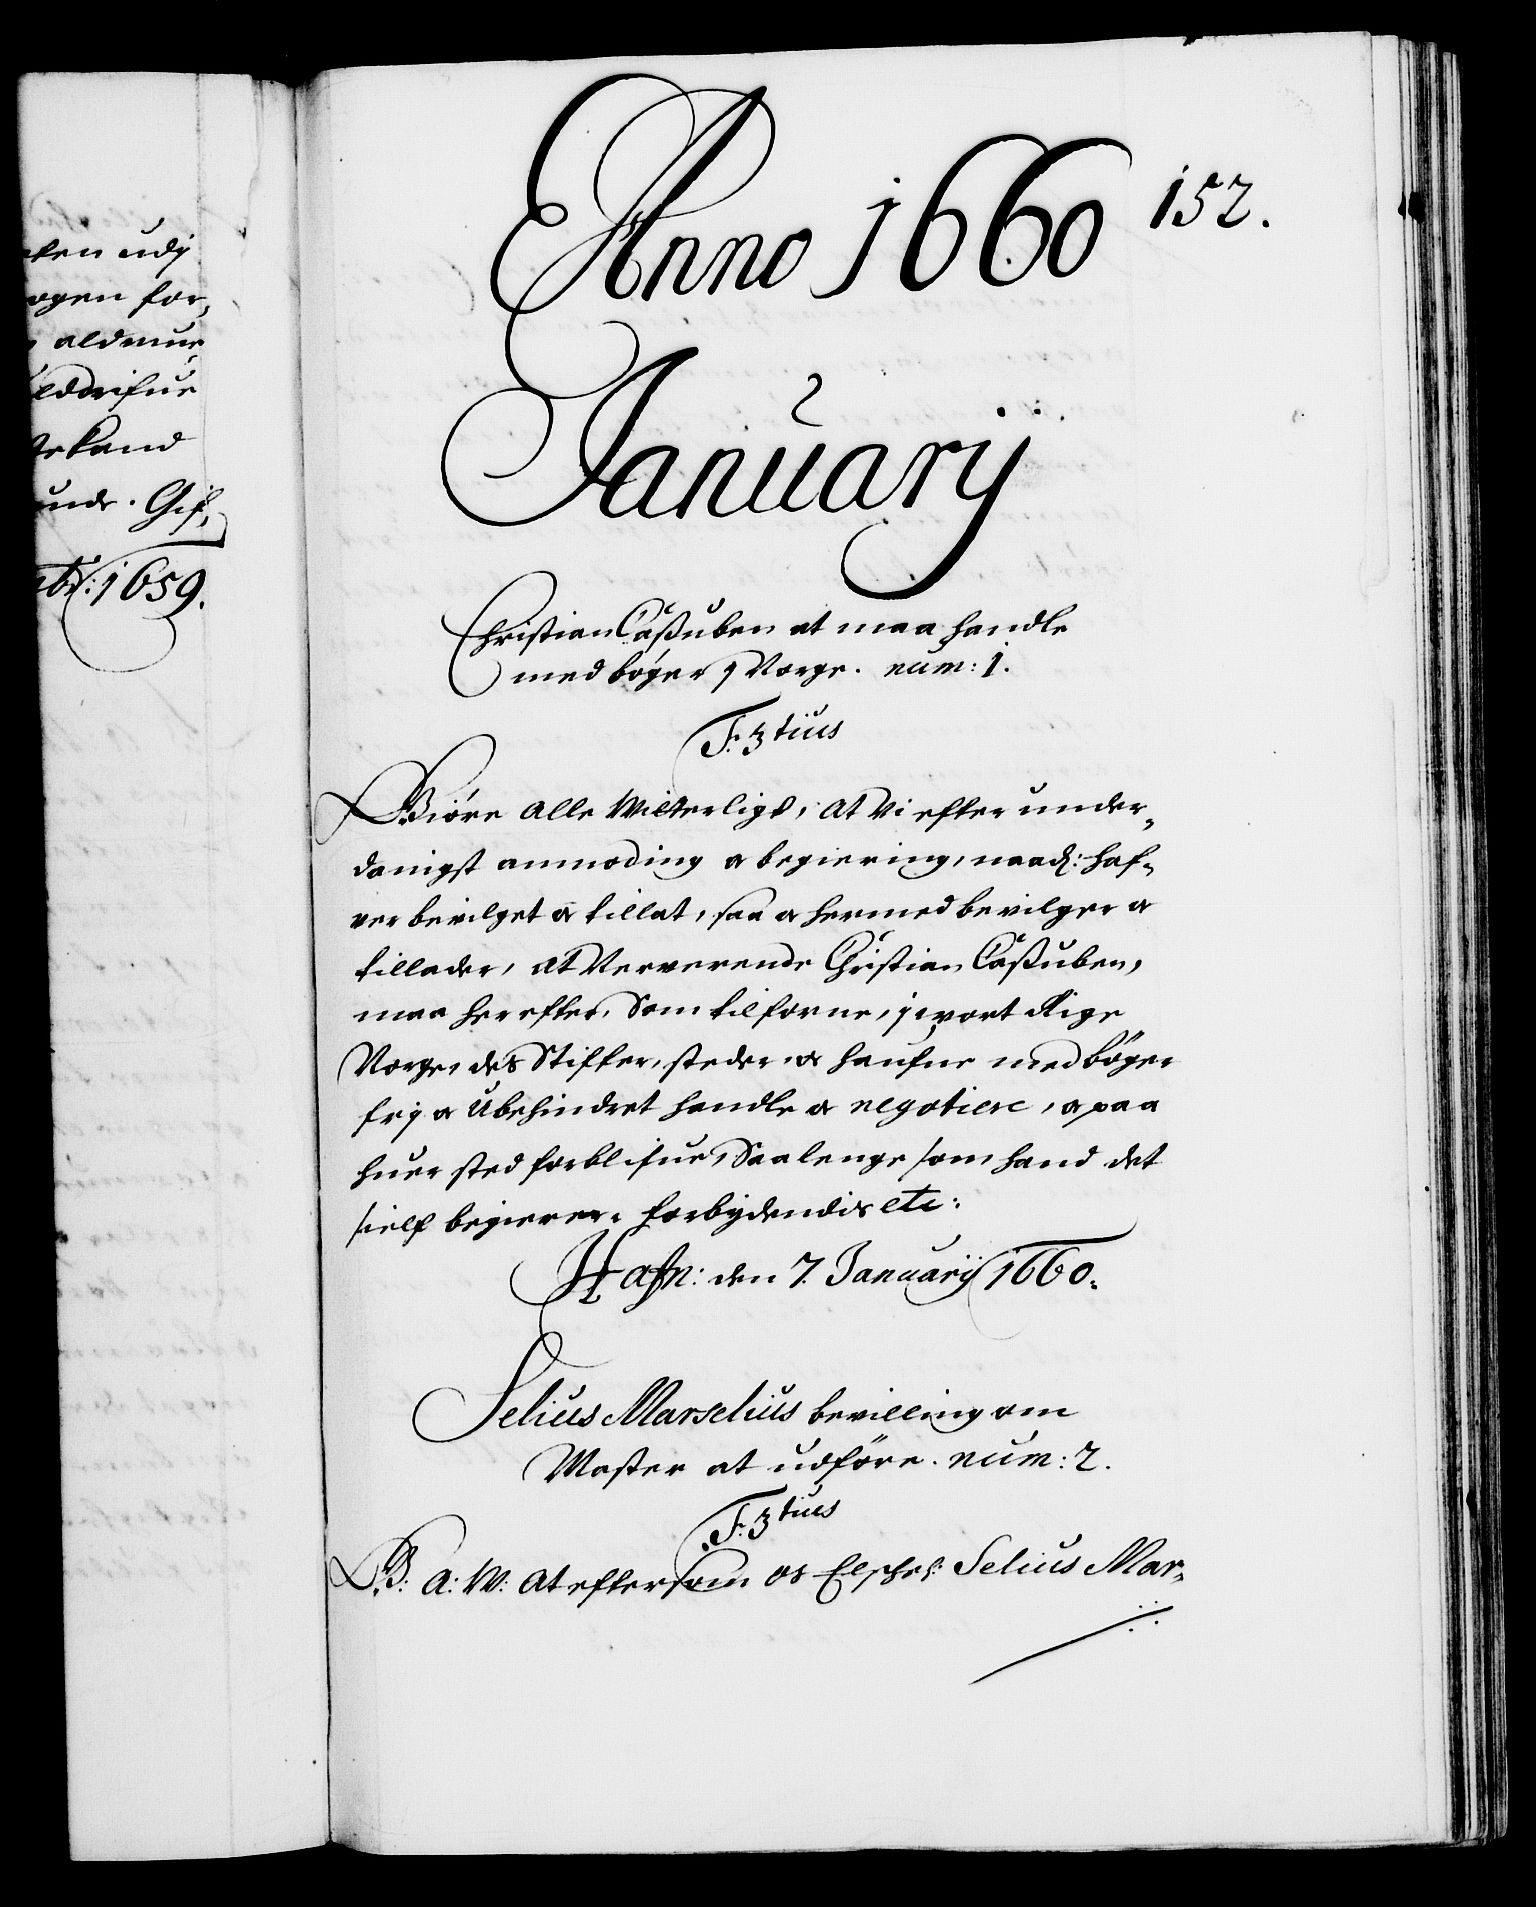 Anno 1660 152.
Januarij
Christian Casßuben at maa handle
med bøger j Norge. num: 1.
F. 3tius
Giøre Alle Witterligt, At Vi efter under-
danigst anmoding og begiering, naad: haf-
ver bevilget og tillat, saa og hermed bevilger og
tillader, at Nerverende Christian Casßuben,
maa her efter, Som tilforne, j wort Rige
Norge, des Stifter, steder, og haufne med bøger
frij og Ubehindret handle og negotiere, og paa
huer sted forblifue, Saalenge som hand det
sielf begierer. forbydendis etc:
Hafn: den 7. Januarij 1660.
Selius Marselius bevilling om
Master at udføre. num: 2.
F. 3tius
G: A: W: At eftersom os Elschel: Selius Mar-
ten udj
ogen for-
aldmue
eldrifue
kand
unde. Gif-
1659.